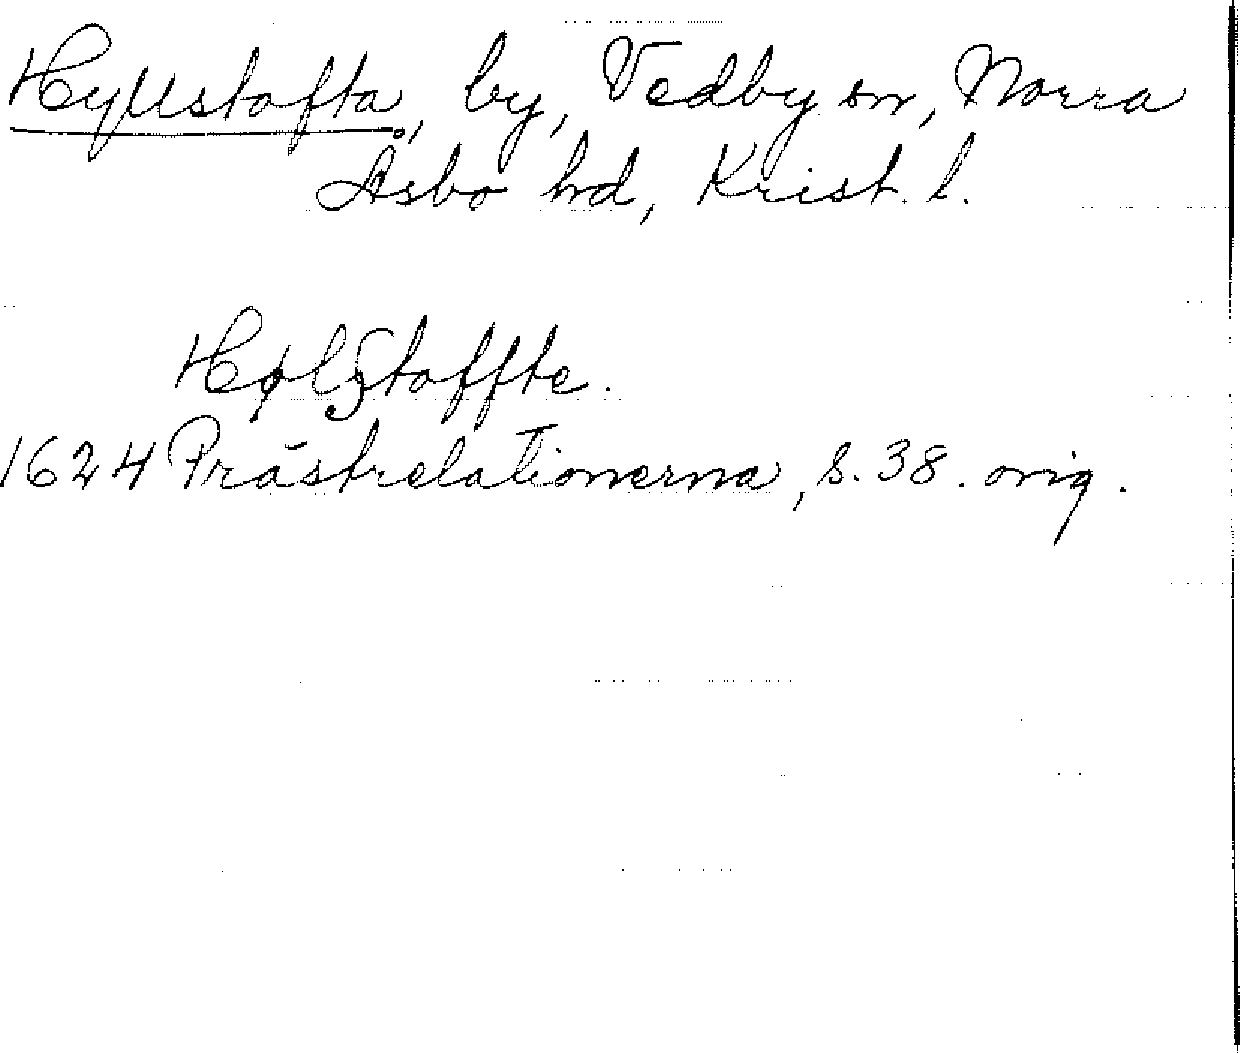 Hyllstofta, by, Vedby sn, Norra
Åsbo hd, Krist. l.
Hølstoffte.
1624 Prästrelationerna, s. 38. orig.